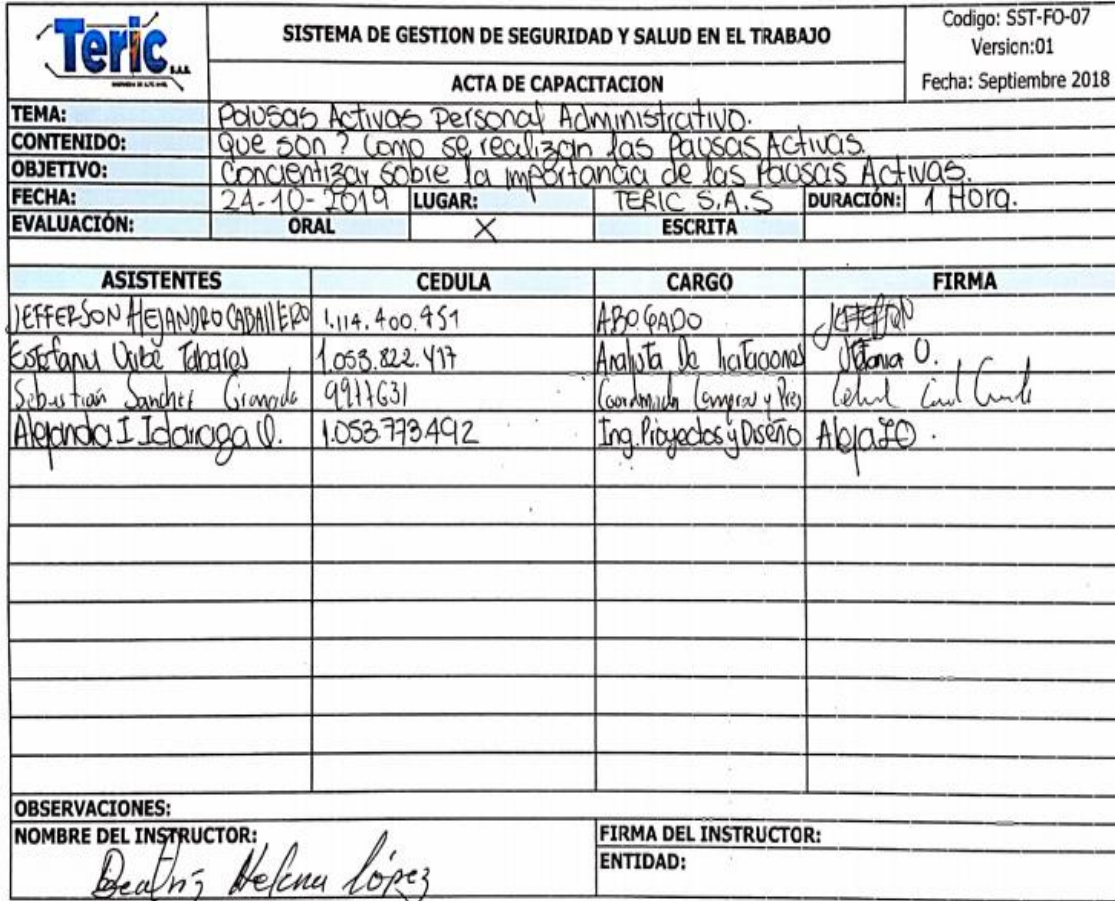 Teric S.A.S.
INGENIERIA DE ALTO NIVEL
SISTEMA DE GESTION DE SEGURIDAD Y SALUD EN EL TRABAJO
ACTA DE CAPACITACION
Codigo: SST-FO-07
Version:01
Fecha: Septiembre 2018
TEMA: Pausas Activas Personal Administrativo.
CONTENIDO: Que son? Como se realizan las Pausas Activas.
OBJETIVO: Concientizar sobre la importancia de las Pausas Activas.
FECHA: 24-10-2019 LUGAR: TERIC S.A.S DURACIÓN: 1 Hora.
EVALUACIÓN: ORAL X ESCRITA
ASISTENTES CEDULA CARGO FIRMA
JEFFERSON ALEJANDRO CABALLERO 1.114.400.951 ABOGADO JEFFERSON
Estefany Uribe Tabares 1.053.822.417 Analista De licitaciones
Sebastian Sanchez Granada 9911631 Coordinador Compras y Pres
Alejandra I Idarraga O. 1.053.773.492 Ing. Proyectos y Diseño
OBSERVACIONES:
NOMBRE DEL INSTRUCTOR: FIRMA DEL INSTRUCTOR:
Beatriz Helena López ENTIDAD: